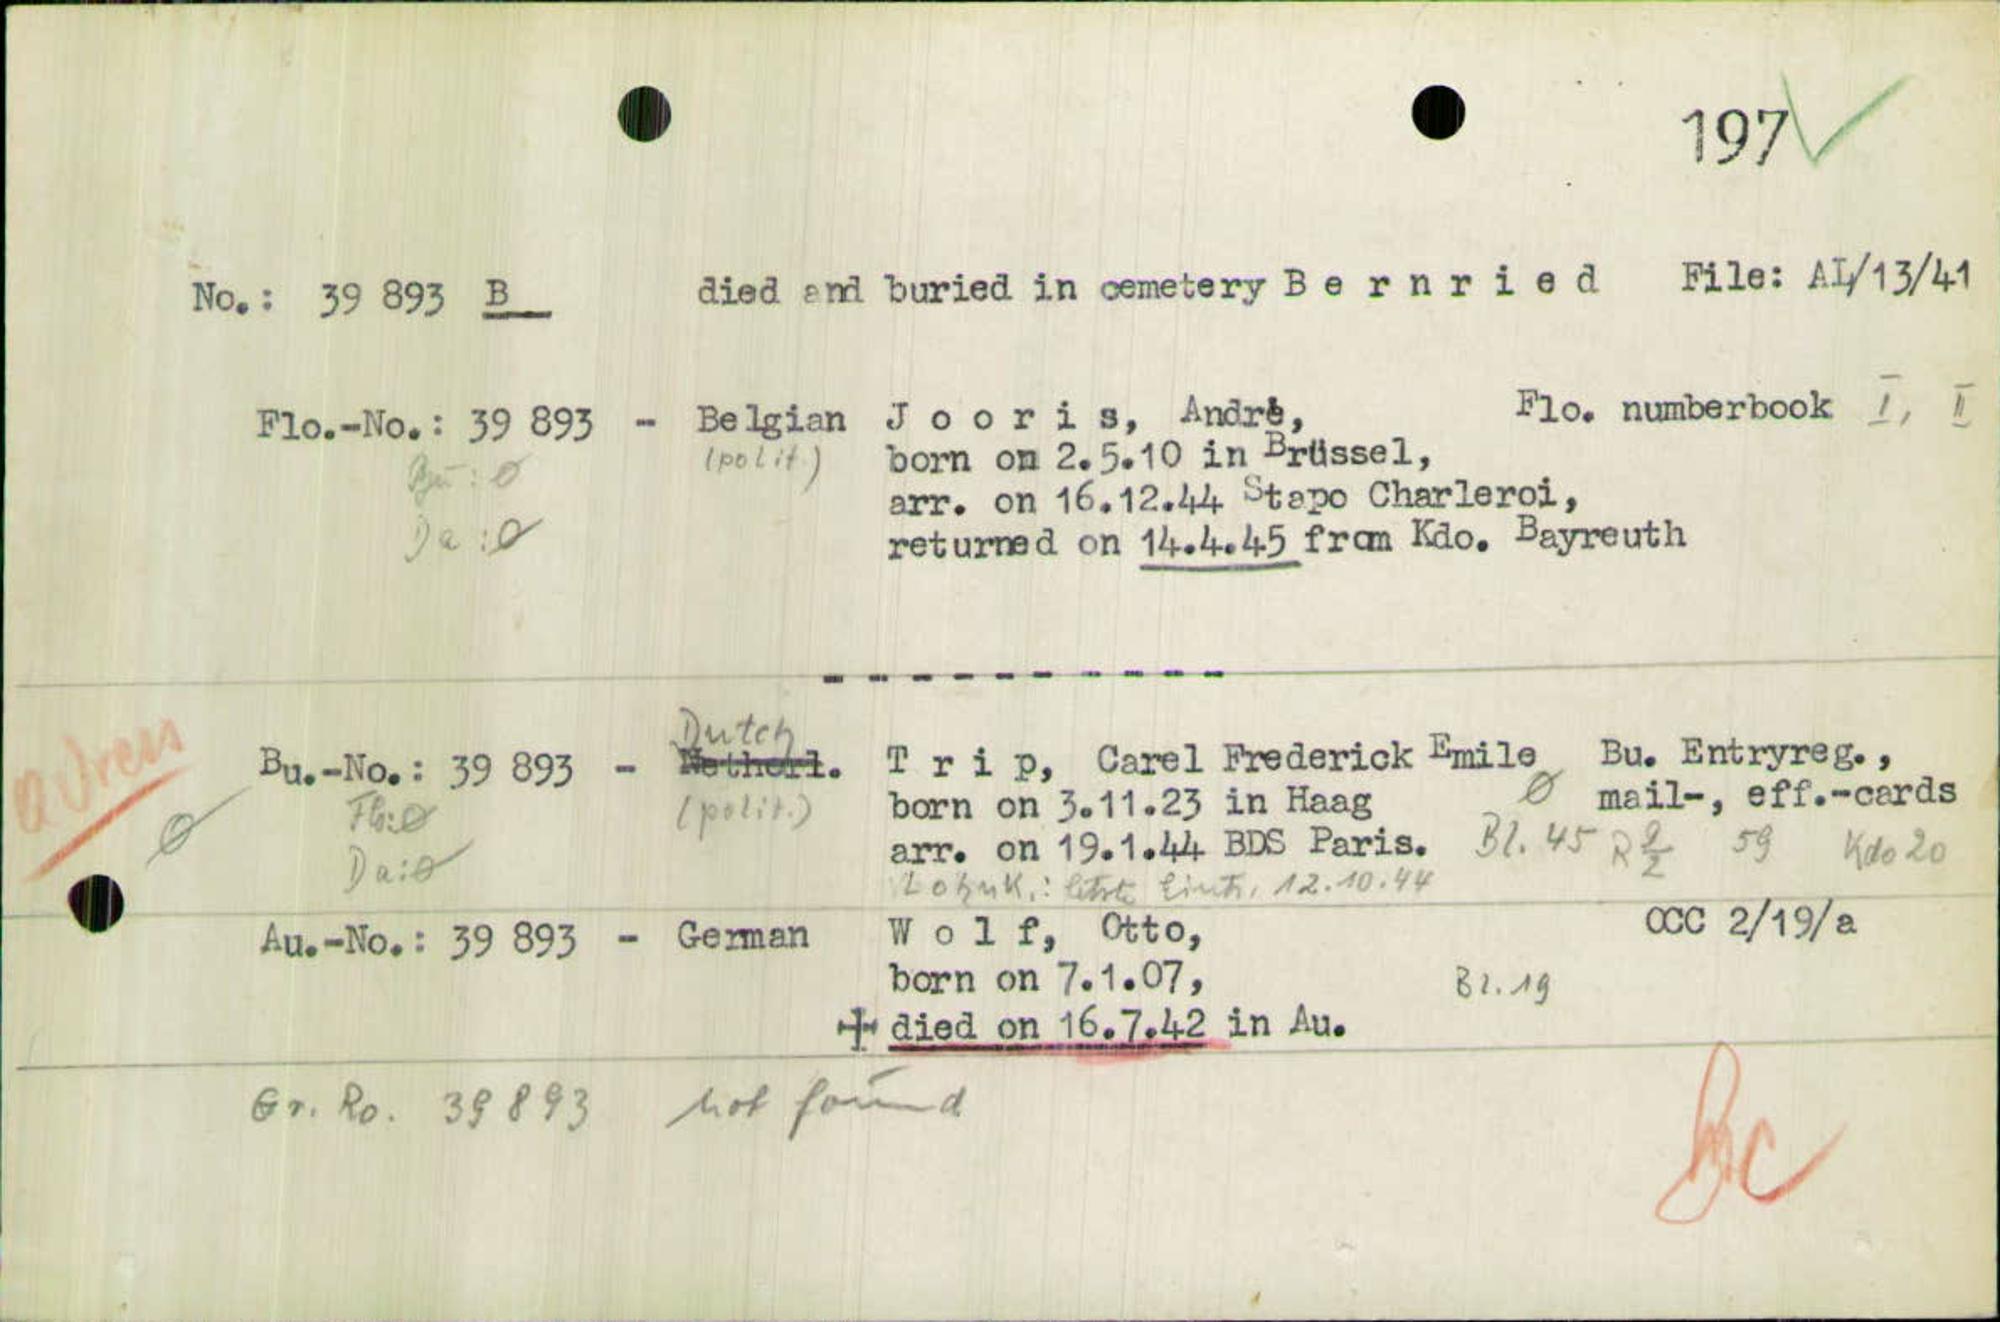 197
No.: 39 893 B died and buried in cemetery B e r n r i e d File: AL/13/41
Flo.-No.: 39 893 - Belgian J o o r i s, Andrè, Flo. numberbook I, II
Bu: Ø (polit.) born on 2.5.10 in Brüssel,
arr. on 16.12.44 Stapo Charleroi,
Da: Ø returned on 14.4.45 from Kdo. Bayreuth
- - - - - - - - - -
Dutch
Bu.-No.: 39 893 - Netherl. T r i p, Carel Frederick Emile Bu. Entryreg.,
Flo: Ø (polit.) born on 3.11.23 in Haag Ø mail-, eff.-cards
Ø Da: Ø arr. on 19.1.44 BDS Paris. Bl. 45 59 Kdo 20
letzte Eintr. 12.10.44
Au.-No.: 39 893 - German W o l f, Otto, OCC 2/19/a
born on 7.1.07, Bl. 19
died on 16.7.42 in Au.
Gr. Ro. 39893 not found